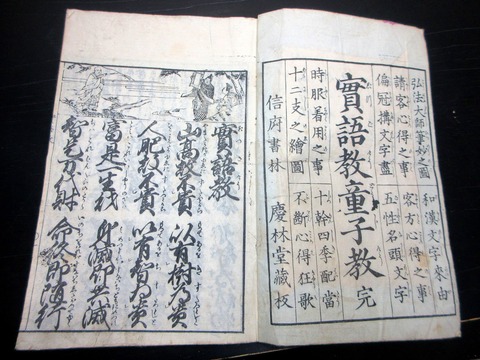 弘法大師筆妙之圖 和漢文字來由
請客心得之事 客方心得之事
偏冠構文字盡 五性名頭文字
實語教童子教 完
時服着用之事 十幹四季配當
十二支之繪圖 不斷心得狂歌
信府書林 慶林堂藏板
實語教
山高故不貴 以有樹為貴
人肥故不貴 以有智為貴
富是一生財 身滅即共滅
智是万代財 命終即随行